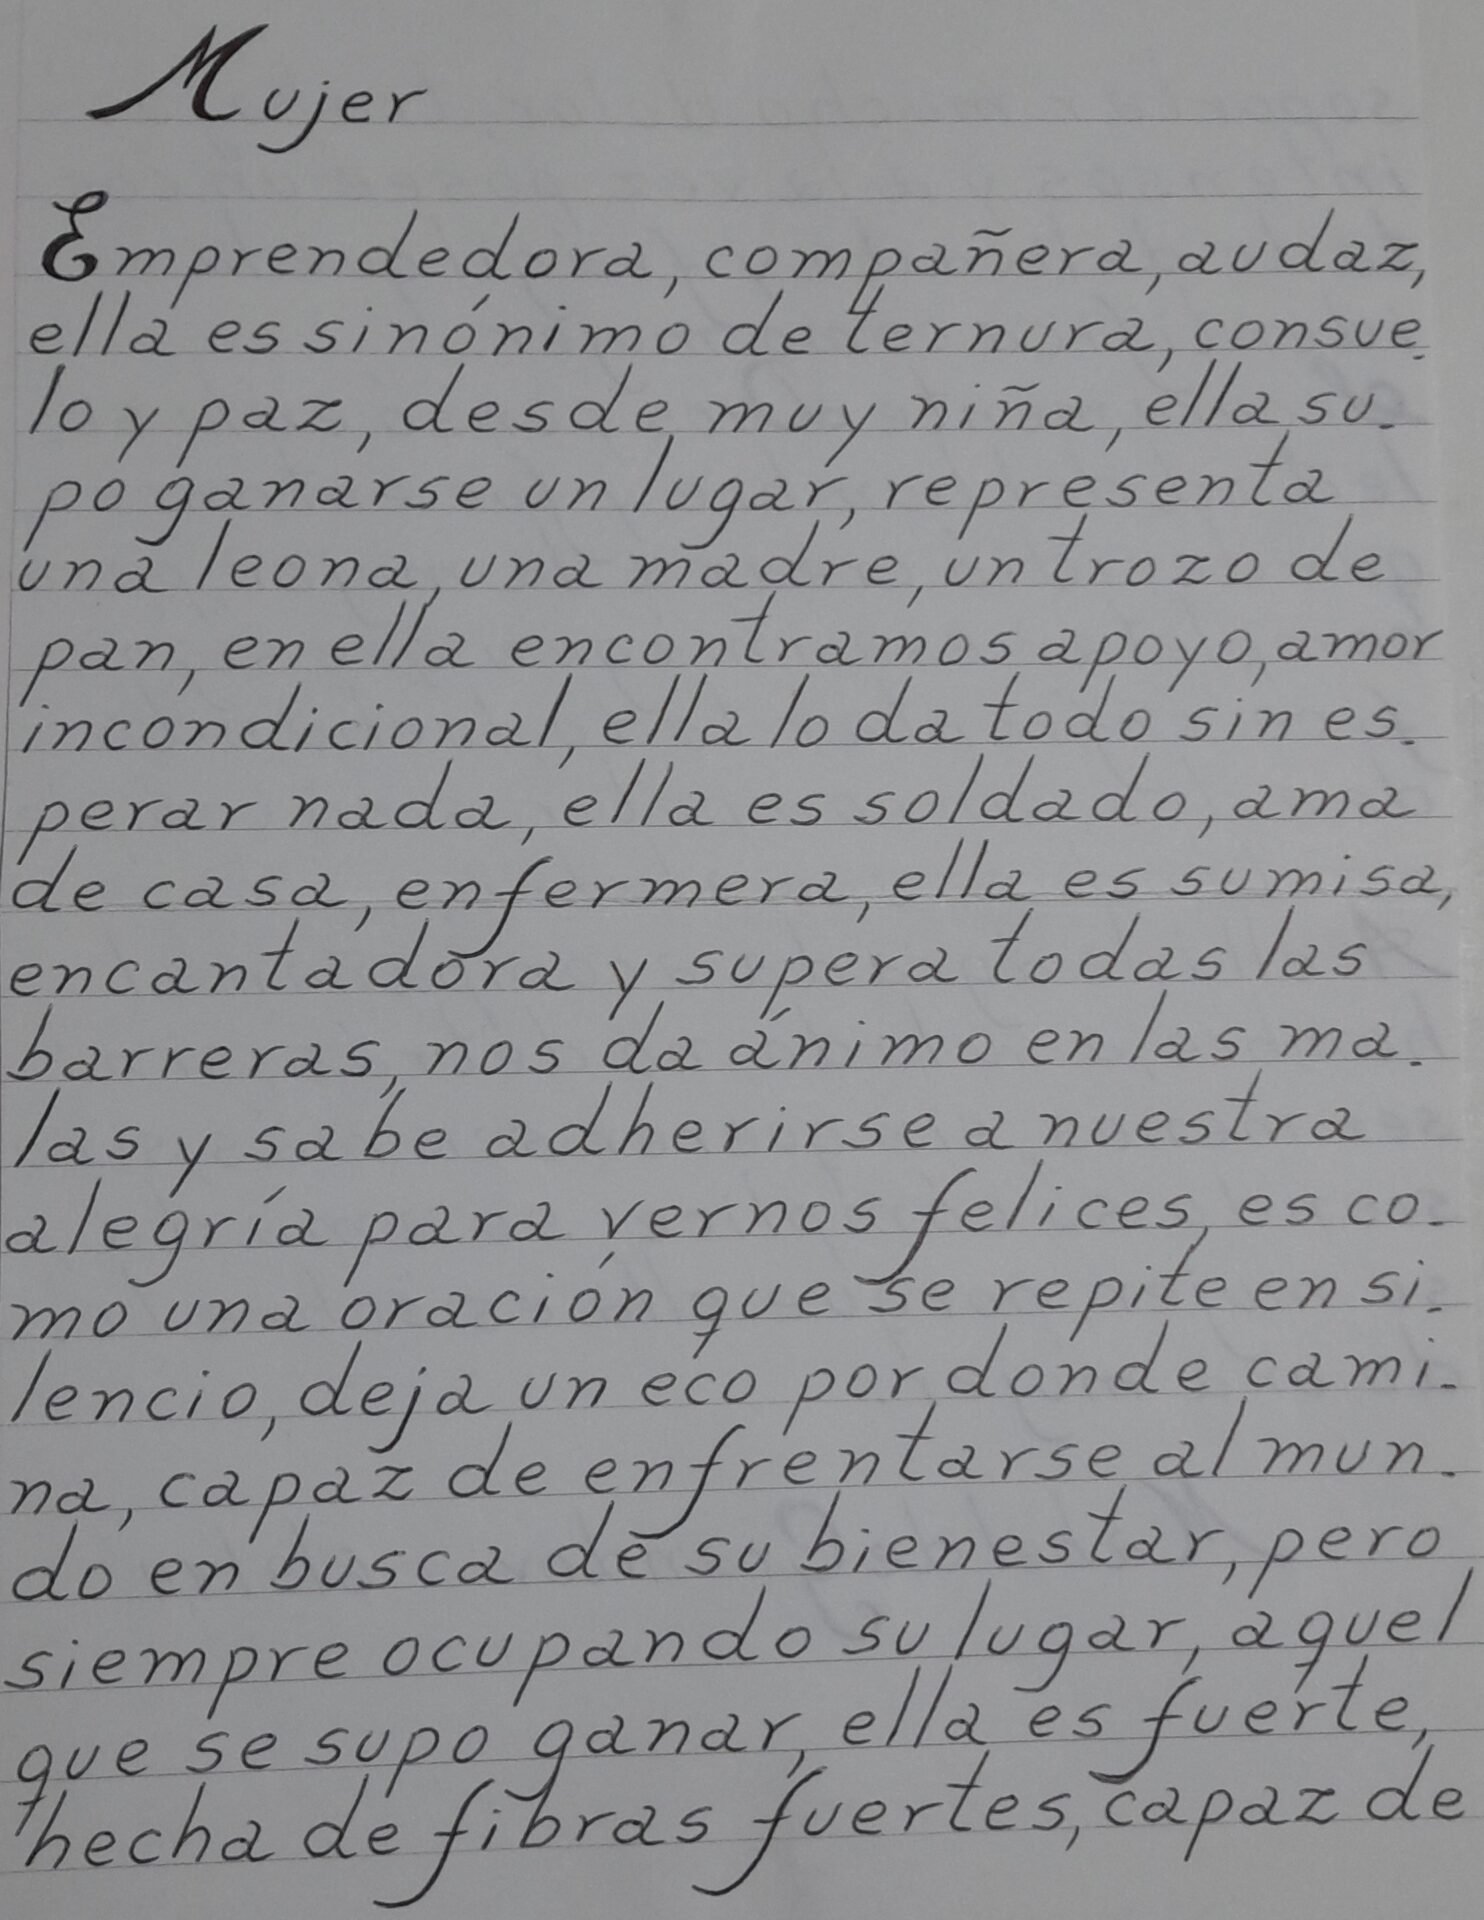 Mujer
Emprendedora, compañera, audaz,
ella es sinónimo de ternura, consue-
lo y paz, desde muy niña, ella su-
po ganarse un lugar, representa
una leona, una madre, un trozo de
pan, en ella encontramos apoyo, amor
incondicional, ella lo da todo sin es-
perar nada, ella es soldado, ama
de casa, enfermera, ella es sumisa,
encantadora y supera todas las
barreras, nos da ánimo en las ma-
las y sabe adherirse a nuestra
alegría para vernos felices, es co-
mo una oración que se repite en si-
lencio, deja un eco por donde cami-
na, capaz de enfrentarse al mun-
do en busca de su bienestar, pero
siempre ocupando su lugar, aquel
que se supo ganar, ella es fuerte,
hecha de fibras fuertes, capaz de